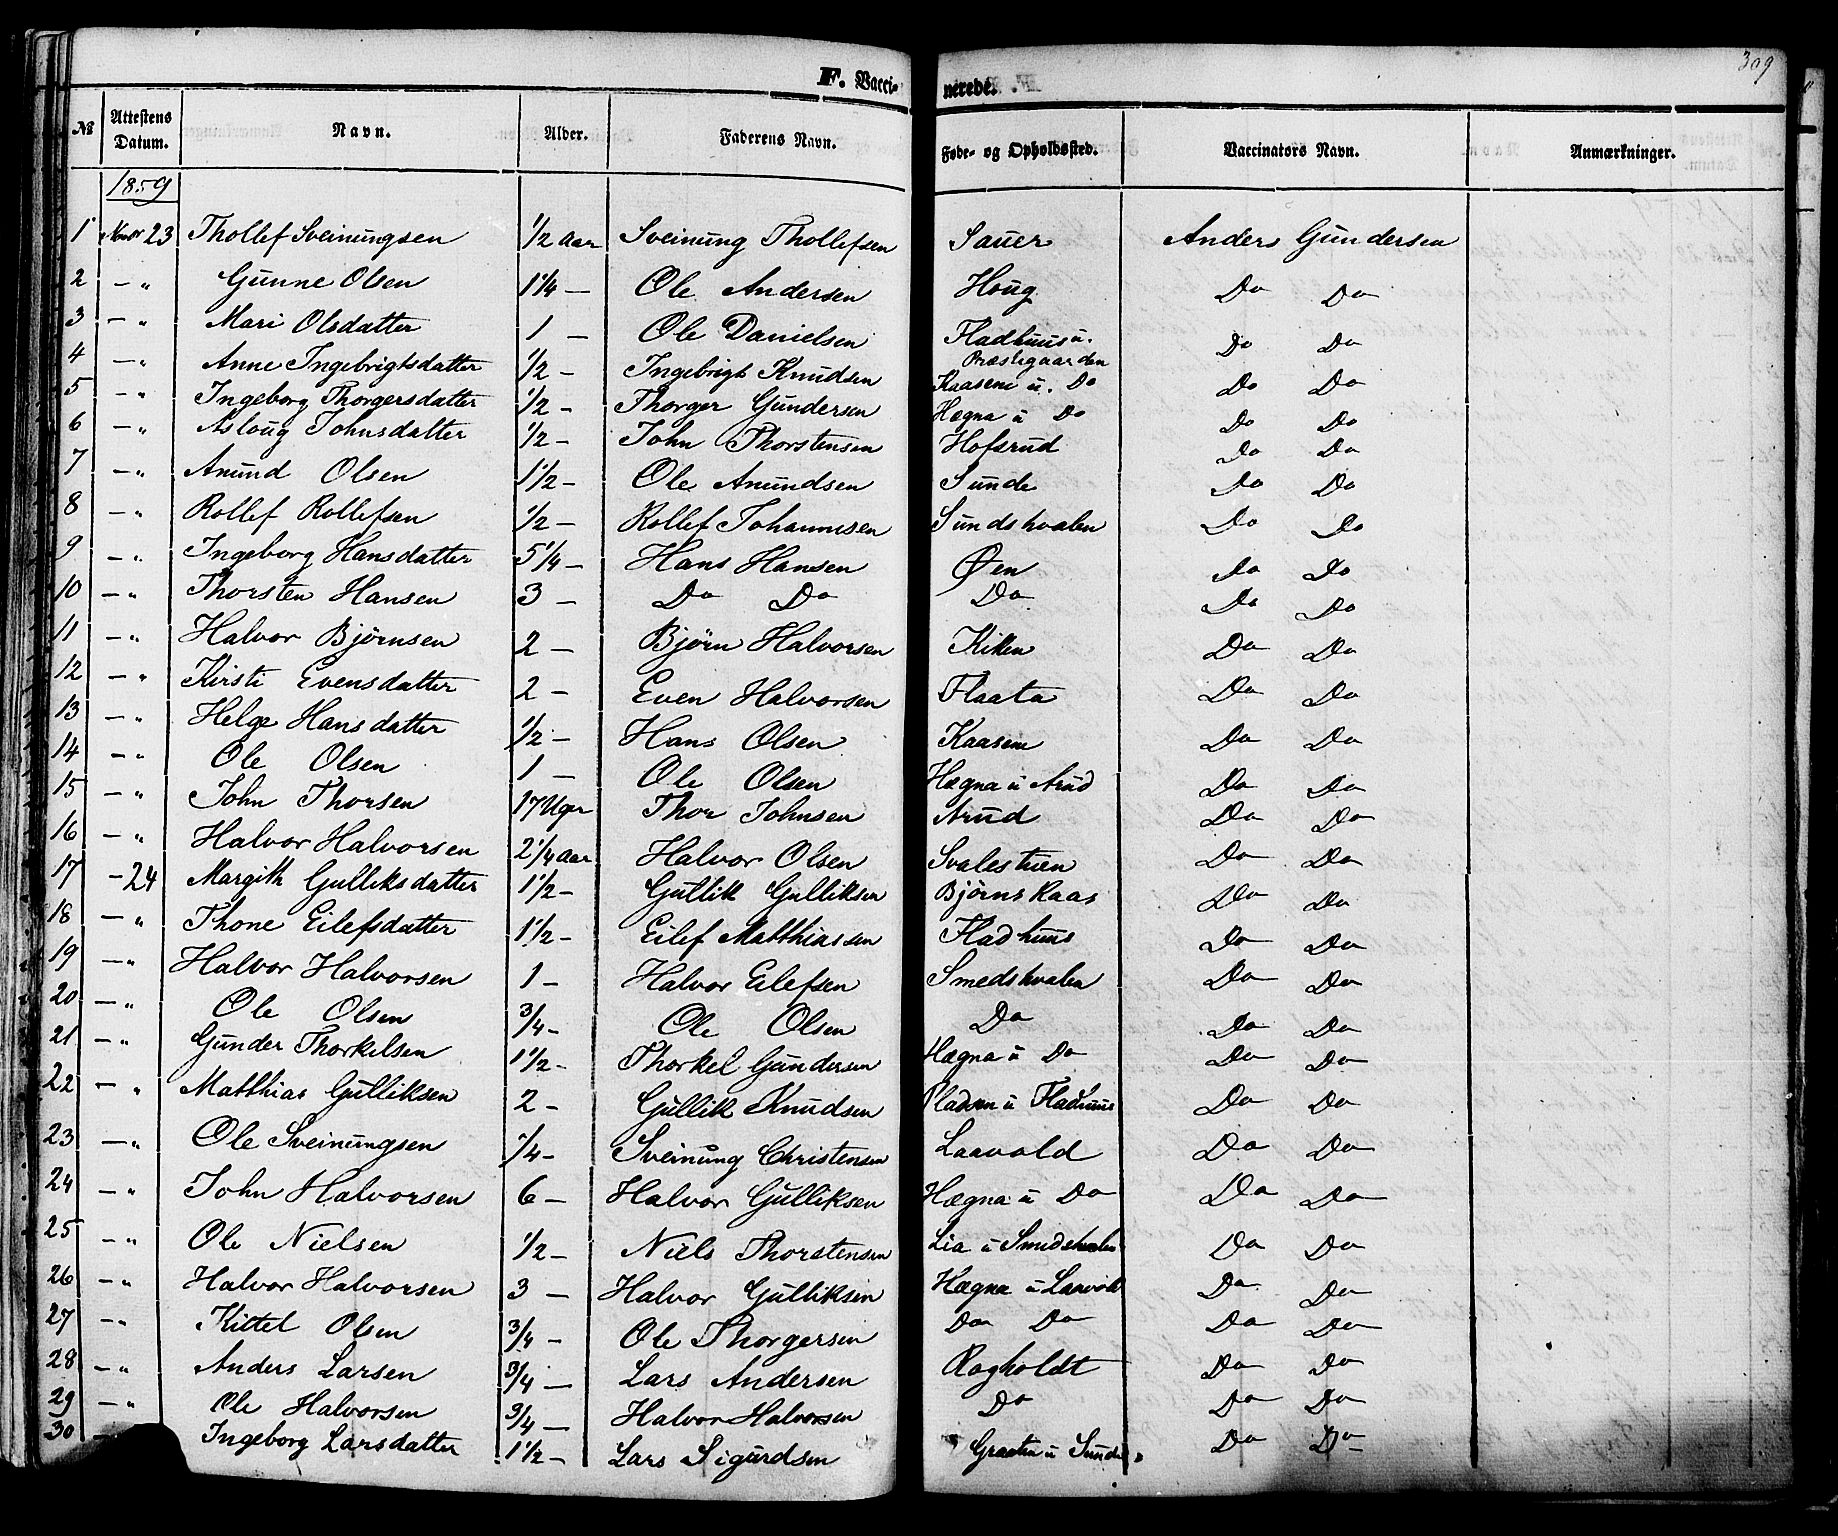 309
F. Vacci- nerede.
№ Attestens Datum. Navn. Alder. Faderens Navn. Føde- og Opholdssted. Vaccinators Navn. Anmærkninger.
1859
1 Novbr 23 Thollef Sveinungsen 1/2 Aar Sveinung Thollefsen Sauer Anders Gundersen
2 — " Gunne Olsen 1 1/4 — Ole Andersen Houg Do Do
3 — " Mari Olsdatter 1 — Ole Danielsen Fladhuus u. Præstegaarden Do Do
4 — " Anne Ingebrigtsdatter 1/2 — Ingebrigt Knudsen Kaasene u. Do Do Do
5 — " Ingeborg Thorgersdatter 1/2 — Thorger Gundersen Hægna u Do Do Do
6 — " Asloug Johnsdatter 1/2 — John Thorstensen Hofsrud Do Do
7 — " Anund Olsen 1 1/2 — Ole Anundsen Sunde Do Do
8 — " Rollef Rollefsen 1/2 — Rollef Johannesen Sundshvalen Do Do
9 — " Ingeborg Hansdatter 5 1/4 — Hans Hansen Øen Do Do
10 — " Thorsten Hansen 3 — Do Do Do Do Do
11 — " Halvor Bjørnsen 2 — Bjørn Halvorsen Kiken Do Do
12 — " Kirsti Evensdatter 2 — Even Halvorsen Flaata Do Do
13 — " Helge Hansdatter 1/2 — Hans Olsen Kaasene Do Do
14 — " Ole Olsen 1 — Ole Olsen Hægna u Arud Do Do
15 — " John Thorsen 17 Uger Thor Johnsen Arud Do Do
16 — " Halvor Halvorsen 2 1/4 Aar Halvor Olsen Svalestuen Do Do
17 — 24 Margith Gulliksdatter 1 1/2 — Gullik Gulliksen Bjørnskaas Do Do
18 — " Thone Eilefsdatter 1 1/2 — Eilef Matthiassen Fladhuus Do Do
19 — " Halvor Halvorsen 1 — Halvor Eilefsen Smedshvalen Do Do
20 — " Ole Olsen 3/4 — Ole Olsen Do Do Do
21 — " Gunder Thorkelsen 1 1/2 — Thorkel Gundersen Hægna u Do Do Do
22 — " Matthias Gulliksen 2 — Gullik Knudsen Pladsen u Fladhuus Do Do
23 — " Ole Sveinungsen 1/4 — Sveinung Christensen Laavold Do Do
24 — " John Halvorsen 6 — Halvor Gulliksen Hægna u Do Do Do
25 — " Ole Nielsen 1/2 — Niels Thorstensen Lia u Smedshvalen Do Do
26 — " Halvor Halvorsen 3 — Halvor Gulliksen Hægna u Laavold Do Do
27 — " Kittel Olsen 3/4 — Ole Thorgersen Do Do Do Do
28 — " Anders Larsen 3/4 — Lars Andersen Ragholdt Do Do
29 — " Ole Halvorsen 3/4 — Halvor Halvorsen Do Do Do
30 — Ingeborg Larsdatter 1 1/2 — Lars Sigurdsen u Sunde Do Do